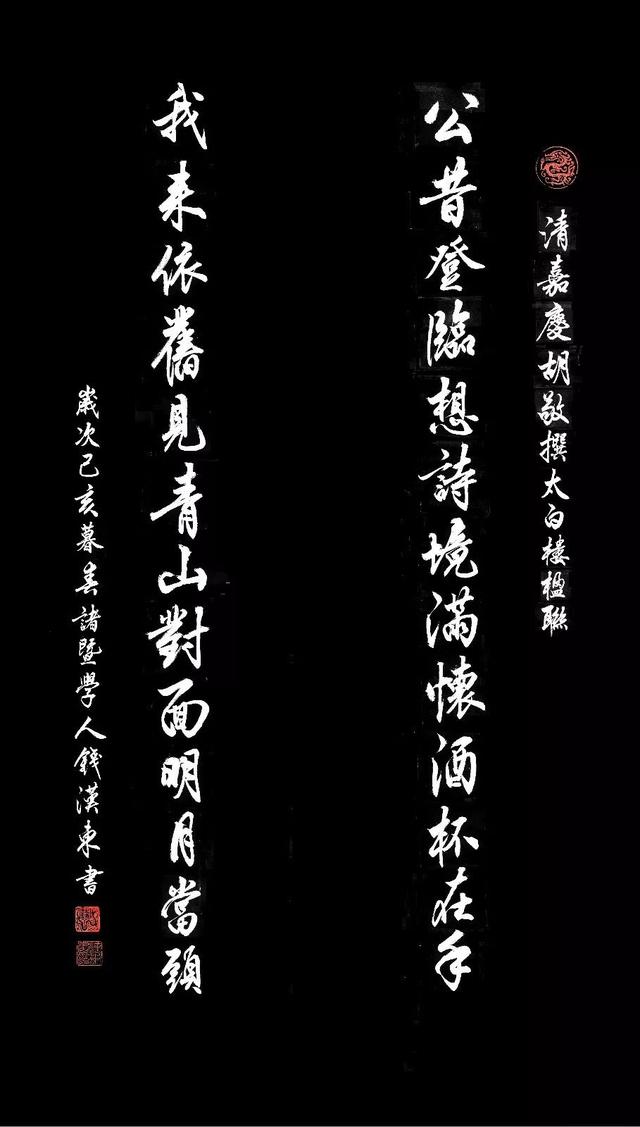 清嘉慶胡敬撰太白樓楹聯
公昔登臨想詩境滿懷酒杯在手
我来依舊見青山對面明月當頭
歲次己亥暮春諸暨學人錢漢東書